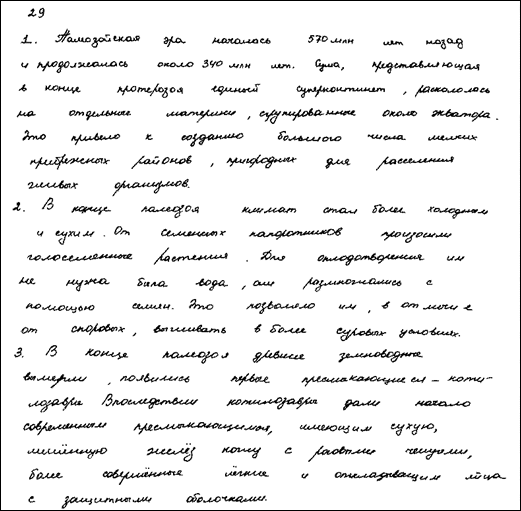 29
1. Палеозойская эра началась 570 млн лет назад
и продолжалась около 340 млн лет. Суша, представляющая
в конце протерозоя единый суперконтинент, раскололась
на отдельные материки, сгрупированные около экватора.
Это привело к созданию большого числа мелких
прибрежных районов, пригодных для расселения
живых организмов.
2. В конце палеозоя климат стал более холодным
и сухим. От семенных папоротников произошли
голосеменные растения. Для оплодотворения им
не нужна была вода, они размножались с
помощью семян. Это позволяло им, в отличие
от споровых, выживать в более суровых условиях.
3. В конце палеозоя древние земноводные
вымерли, появились первые пресмыкающиеся – коти-
лозавры Впоследствии котилозавры дали начало
современным пресмыкающимся, имеющим сухую,
лишённую желёз кожу с роговыми чешуями,
более совершённые лёгкие и откладывающим яйца
с защитными оболочками.